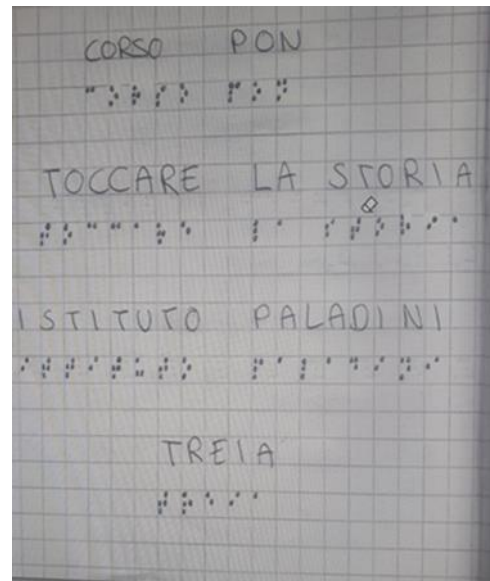 CORSO PON
⠉⠕⠗⠎⠕ ⠏⠕⠝
TOCCARE LA STORIA
⠞⠕⠉⠉⠁⠗⠑ ⠇⠁ ⠎⠞⠕⠗⠊⠁
ISTITUTO PALADINI
⠊⠎⠞⠊⠞⠥⠞⠕ ⠏⠁⠇⠁⠙⠊⠝⠊
TREIA
⠞⠗⠑⠊⠁